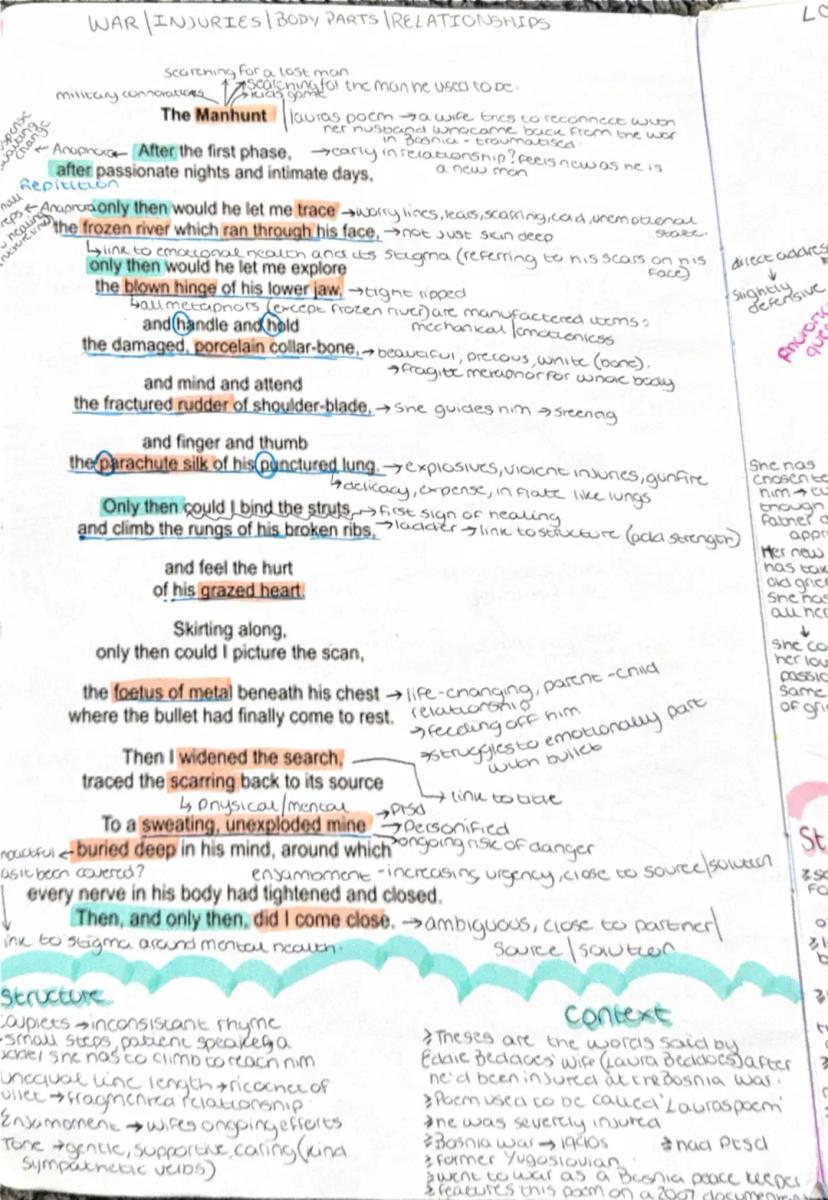 WAR | INJURIES | BODY PARTS | RELATIONSHIPS
searching for a lost man
searching for the man he used to be.
military connotations
kids game
The Manhunt
lauras poem → a wife tries to reconnect with
her husband who came back from the war
in Bosnia - traumatised.
← Anaphora
After the first phase,
→ early in relationship? feels new as he is
a new man
after passionate nights and intimate days,
Repitition
← Anaphora
only then would he let me trace
→ worry lines, tears, scarring, cold, unemotional
state.
the frozen river which ran through his face,
→ not just skin deep
↳ link to emotional health and its stigma (referring to his scars on his
face)
only then would he let me explore
the blown hinge of his lower jaw,
→ tight lipped
↳ all metaphors (except frozen river) are manufactured items =
mechanical / emotionless
and handle and hold
the damaged, porcelain collar-bone,
→ beautiful, precious, white (bone).
→ fragile metaphor for whole body
and mind and attend
the fractured rudder of shoulder-blade,
→ she guides him → sreering
and finger and thumb
the parachute silk of his punctured lung.
→ explosives, violent injuries, gunfire
↳ delicacy, expense, inflate like lungs
Only then could I bind the struts
→ first sign of healing
and climb the rungs of his broken ribs,
→ ladder → link to structure (add strength)
and feel the hurt
of his grazed heart.
Skirting along,
only then could I picture the scan,
the foetus of metal beneath his chest
→ life-changing, parent-child
relationship
where the bullet had finally come to rest.
→ feeding off him
→ struggles to emotionally part
with bullet
Then I widened the search,
traced the scarring back to its source
→ link to title
↳ physical/mental
→ Ptsd
To a sweating, unexploded mine
→ personified
ongoing risk of danger
buried deep in his mind, around which
as it been covered?
enjambment - increasing urgency, close to source/solution
every nerve in his body had tightened and closed.
Then, and only then, did I come close.
→ ambiguous, close to partner/
source/solution
link to stigma around mental health.
Structure
couplets → inconsistant rhyme
small steps, patient speaker, a
ladder she has to climb to reach him
unequal line length → ricochet of
bullet → fragmented relationship
Enjambment → wifes ongoing efforts
Tone → gentle, supportive, caring (kind
sympathetic verbs)
Context
Theses are the words said by
Eddie Beddoes' wife (Laura Beddoes) after
he'd been injured at the Bosnia war.
Poem used to be called 'Lauras poem'
he was severely injured
Bosnia war → 1990s
had Ptsd
former Yugoslovian
went to war as a Bosnia peace keeper
features this poem on a 2007
direct address
↓
slightly
defensive
She has